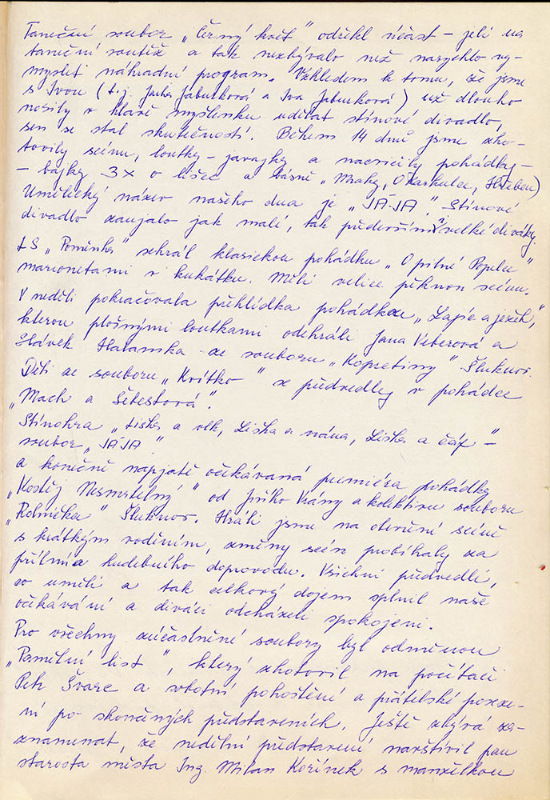 Taneční soubor „Černý květ" odřekl účast – jeli na
taneční soutěž a tak nezbývalo než narychlo vy-
myslet náhradní program. Vzhledem k tomu, že jsme
s Ivou (t.j. Jabůrková a Iva Jabůrková) už dlouho
nosily v hlavě myšlenku udělat stínové divadlo,
sen se stal skutečností. Během 14 dnů jsme zho-
tovily scénu, loutky – javajky a nacvičily pohádky –
– bajky 3x o lišce a básně „Mraky, O kaskulce,
Umělecký název našeho dua je „JA-JA". Stínové
divadlo zaujalo jak malé, tak především velké diváky.
LS „Poměnka" sehrál klasickou pohádku „O pilné Popelce"
marionetami v kukátku. Měli velice pěknou scénu.
V neděli pokračovala přehlídka pohádkou „Zajíc a ježek",
kterou plošnými loutkami odehráli Jana Veterová a
Slávek ze souboru „Kopretiny" Šluknov.
Děti ze souboru „Krítko" se předvedly v pohádce
„Mach a Šebestová".
Stínohra „Liška a vlk, Liška a vrána, Liška a čáp" –
soubor „JAJA"
a konečně napjatě očekávaná premiéra pohádky
„Kostěj Nesmrtelný" od Jiřího Vrány a kolektivu souboru
„Rolnička" Šluknov. Hráli jsme na otevřené scéně
s krátkým voděním, změny scén probíhaly za
přítmí a hudebního doprovodu. Všichni předvedli,
co uměli a tak celkový dojem splnil naše
očekávání a diváci odcházeli spokojeni.
Pro všechny zúčastněné soubory byl odměnou
„Pamětní list", který zhotovil na počítači
Petr Švarc a vlastní pohoštění a přátelské poseze-
ní po skončených představeních. Ještě zbývá za-
znamenat, že nedělní představení navštívil pan
starosta města Ing. Milan Kořínek s manželkou